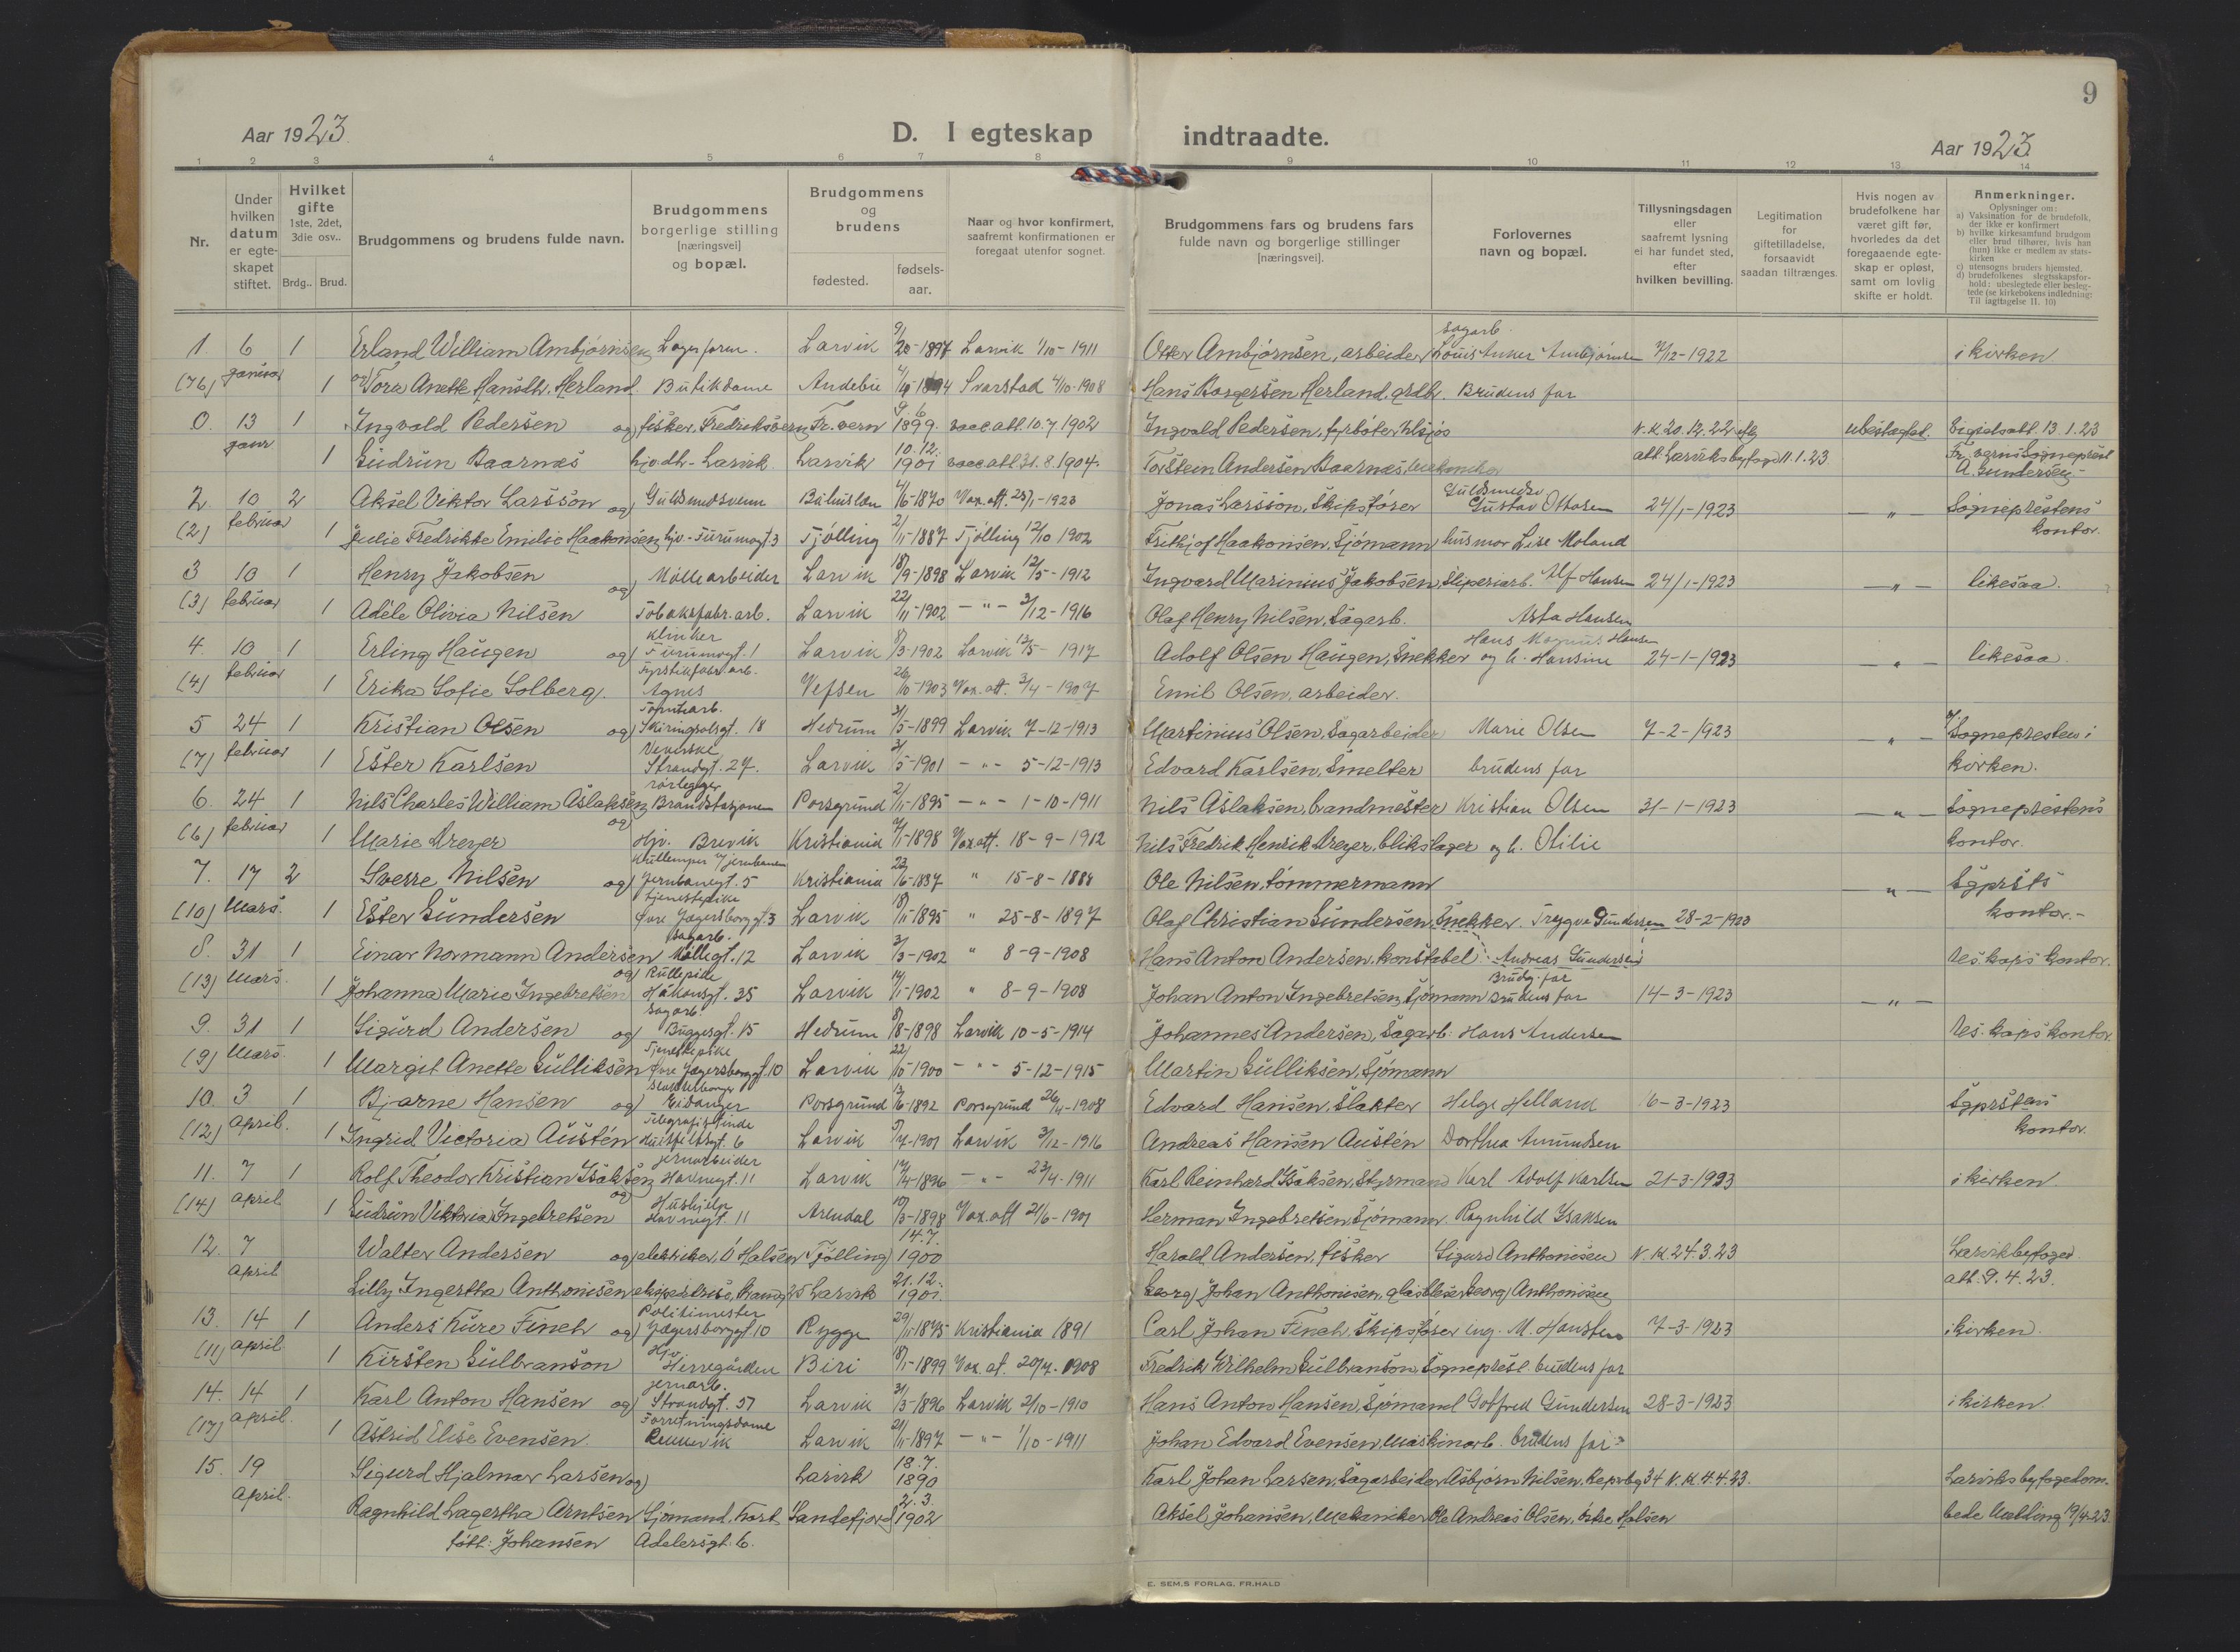 9
Aar 1923.
D. I egteskap indtraadte.
Aar 1923
1 2 3 4 5 6 7 8 9 10 11 12 13 14
Nr.
Under hvilken datum er egteskapet stiftet.
Hvilket gifte
1ste, 2det, 3die osv..
Brdg.. Brud.
Brudgommens og brudens fulde navn.
Brudgommens borgerlige stilling [næringsvei] og bopæl.
Brudgommens og brudens
fødested.
fødsels-aar.
Naar og hvor konfirmert, saafremt konfirmationen er foregaat utenfor sognet.
Brudgommens fars og brudens fars fulde navn og borgerlige stillinger [næringsvei].
Forlovernes navn og bopæl.
Tillysningsdagen eller saafremt lysning ei har fundet sted, efter hvilken bevilling.
Legitimation for giftetilladelse, forsaavidt saadan tiltrænges.
Hvis nogen av brudefolkene har været gift før, hvorledes da det foregaaende egteskap er opløst, samt om lovlig skifte er holdt.
Anmerkninger.
Oplysninger om:
a) Vaksination for de brudefolk, der ikke er konfirmert
b) hvilke kirkesamfund brudgom eller brud tilhører, hvis han (hun) ikke er medlem av statskirken
c) utensogns bruders hjemsted.
d) brudefolkenes slegtsskapsforhold: ubeslegtede eller beslegtede (se kirkebokens indledning: Til iagttagelse II. 10)
1. 6 1 Erland William Ambjørnsen Lagerform. Larvik 9/20-1897 Larvik 1/10-1911 Otter Ambjørnsen, arbeider sagarb. Louis Anker Ambjørnsen 7/12-1922 i kirken
(76) januar 1 og Tora Anette Hansdtr. Herland. Butikdame Andebu 1894 Svarstad 4/10-1908 Hans Borgersen Herland, grdbr. Brudens far
0. 13 1 Ingvald Pedersen og fisker, Fredriksvern Fr.vern 9.6. 1899. vacc att. 10.7.1902 Ingvald Pedersen, N.K. 20.12.22 ubeslægtet. Vigselsatt. 13.1.23
janr. 1 Gudrun Baarnæs hjv. dtr. Larvik Larvik 10.12. 1901 vacc att 31.8.1904. Torstein Andersen Baarnæs, mekaniker att. Larviks byfoged 11.1.23 Fr.verns Sogneprest A. Gundersen
2. 10 2 Aksel Viktor Larsson og Guldsmedsvenn Buhuslen 4/6-1870 Vax. att. 23/1-1923 Jonas Larsson, Skipsfører Guldsmed Gustav Ottosen 24/1-1923 — " — Sogneprestens
(2) februar 1 Julie Fredrikke Emilie Haakonsen hjv. Furumogt. 3 Tjølling 2/11-1887 Tjølling 12/10 1902 Frithjof Haakonsen, Sjømann husmor Lise Moland kontor.
3 10 1 Henry Jakobsen og Møllearbeider Larvik 18/9-1898 Larvik 12/5-1912 Ingvard Marinius Jakobsen, Sliperiarb. Alf Hansen 24/1-1923 — " — likesaa.
(3) februar 1 Adéle Olivia Nilsen Tobaksfabr. arb. Larvik 22/11-1902 — " — 3/12-1916 Olaf Henry Nilsen, Sagarb. Asta Hansen
4. 10 1 Erling Haugen og Klinker Furumogt. 1 Larvik 8/3-1902 Larvik 13/5-1917 Adolf Olsen Haugen, Snekker Hans Magnus Hansen og h. Hansine 24-1-1923 — " — likesaa
(4) februar 1 Erika Sofie Solberg. Fyrstikfabr. arb. Agnes Vefsen 26/10-1903 Vax. att. 3/4-1907 Emil Olsen, arbeider.
5 24 1 Kristian Olsen og Skiringsalsgt. 18 Hedrum 3/5-1899 Larvik 7-12-1913 Martinius Olsen, Sagarbeider Marie Olsen 7-2-1923 — " — Sognepresten i
(7) februar 1 Ester Karlsen Veverske Strandgt. 27. Larvik 3/5-1901 — " — 5-12-1913 Edvard Karlsen, Smelter brudens far kirken.
6. 24 1 Nils Charles William Aslaksen og rørlegger Brandstasjonen Porsgrund 2/11-1895 — " — 1-10-1911 Nils Aslaksen, brandmester Kristian Olsen 31-1-1923 — " — Sogneprestens
(6) februar 1 Marie Dreyer Hjv. Brevik Kristiania 1898 Vax att. 18-9-1912 Nils Fredrik Henrik Dreyer, blikslager og h. Otilie kontor.
7. 17 2 Sverre Nilsen og Kullemper v/jernbanen Jernbanegt. 5 Kristiania " 15-8-1888 Ole Nilsen, tømmermann — " — Sgprsts
(10) Mars. 1 Ester Gundersen tjenestepike Øvre Jægersborggt. 3 Larvik 18/11-1895 " 25-8-1897 Olaf Christian Gundersen, Snekker. Trygve Gundersen 28-2-1923 kontor.-
8. 31 1 Einar Normann Andersen og Sagarb. Møllegt. 12 Larvik 3/3-1902 " 8-9-1908 Hans Anton Andersen, konstabel. Andreas Gundersen Res. kaps kontor.
(13) Mars. 1 Johanna Marie Ingebretsen Rullepike Håkonsgt. 35 Larvik 14/1-1902 " 8-9-1908 Johan Anton Ingebretsen, Sjømann Brudg. far Brudens far 14-3-1923 — " —
9. 31 1 Sigurd Andersen og Sagarb. Buggesgt. 15 Hedrum 8/8-1898 Larvik 10-5-1914 Johannes Andersen, Sagarb. Hans Andersen Res. kaps kontor
(9) Mars. 1 Margit Anette Gulliksen Tjenestepike Øvre Jægersborggt. 10 Larvik 22/10-1900 — " — 5-12-1915 Martin Gulliksen, Sjømann
10. 3 1 Bjarne Hansen og Eidanger Porsgrund 13/6-1892 Porsgrund 26/4-1908 Edvard Hansen, Slakter Helge Helland 6-3-1923 Sgprstens
(12) april. 1 Ingrid Victoria Austén Telegrafistinde Huitfeldtsgt. 6 Larvik 5/7-1901 Larvik 3/12-1916 Andreas Hansen Austén Dorthea Amundsen kontor.
11. 7 1 Rolf Theodor Kristian Isaksen og jernarbeider Havnegt. 11 Larvik 17/4-1896 — " — 23/4-1911 Karl Reinhard Isaksen, Styrmand Karl Adolf Karlsen 21-3-1923 i kirken
(14) april 1 Gudrun Viktoria Ingebretsen Hushjelp Havnegt. 11 Arendal 10/3-1898 Vax. att 21/6-1901 Herman Ingebretsen, Sjømann. Ragnhild Isaksen
12. 7 Walter Andersen og elektriker, Ø Halsen Tjølling 14.7. 1900 Harald Andersen, fisker Sigurd Anthonisen N.K. 24.3.23 Larvik byfoged.
april Lilly Ingertha Anthonisen Larvik 21.12. 1901. Georg Johan Anthonisen, glasblæser Georg Anthonisen att. 9.4.23.
13. 14 1 Anders Kure Finch og Politimester Jægersborggt. 10 Rygge 29/11-1875 Kristiania 1891 Carl Johan Finch, Skipsfører ing. M. Hansteen 7-3-1923 i kirken.
(11) april. 1 Kirsten Gulbranson Hjv. Herregården Biri 18/1-1899 Vax. at. 20/7-1908 Fredrik Wilhelm Gulbranson, Sogneprest. brudens far
14. 14 1 Karl Anton Hansen og jernarb. Strandgt. 57 Larvik 3/3-1896 Larvik 2/10-1910 Hans Anton Hansen, Sjømand Gotfred Gundersen 28-3-1923 i kirken
(17) april. 1 Astrid Elise Evensen. Forretningsdame Rekkevik Larvik 21/11-1897 — " — 1/10-1911 Johan Edvard Evensen, Maskinarb. brudens far
15. 19 Sigurd Hjalmar Larsen og Larvik 18.7. 1890 Karl Johan Larsen, Sagarbeider Asbjørn Nilsen, Repvbg 34 N.K. 4.4.23. Larviks byfogedem-
april. Ragnhild Lagertha Arntsen Sjømand, Kort Sandefjord 2.3. 1902 Aksel Johansen, Mekaniker Ole Andreas Olsen, østre Halsen bede Melding 19/4.23.
født: Johansen Adelersgt. 6.
E. SEM,S FORLAG, FR.HALD